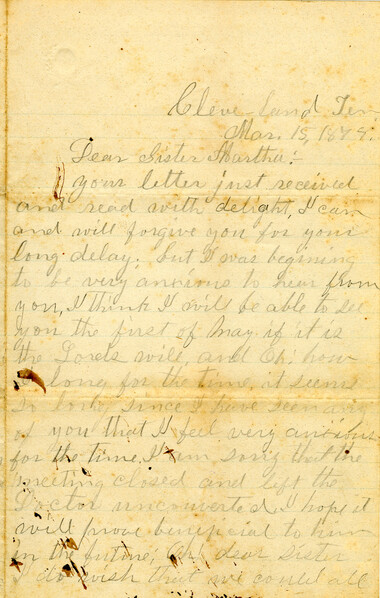 Cleveland Ten
Mar. 15, 1878.
Dear Sister Martha:-
your letter just received
and read with delight, I can
and will forgive you for your
long delay. but I was begining
to be very anxious to hear from
you, I think I will be able to see
you the first of May if it is
the Lords will, and Oh! how
I long for the time, it seems
so long since I have seen any
of you that I feel very anxious
for the time. I am sorry that the
meeting closed and left the
Doctor unconverted. I hope it
will prove beneficial to him
in the future, Oh! dear sister
I do wish that we could all